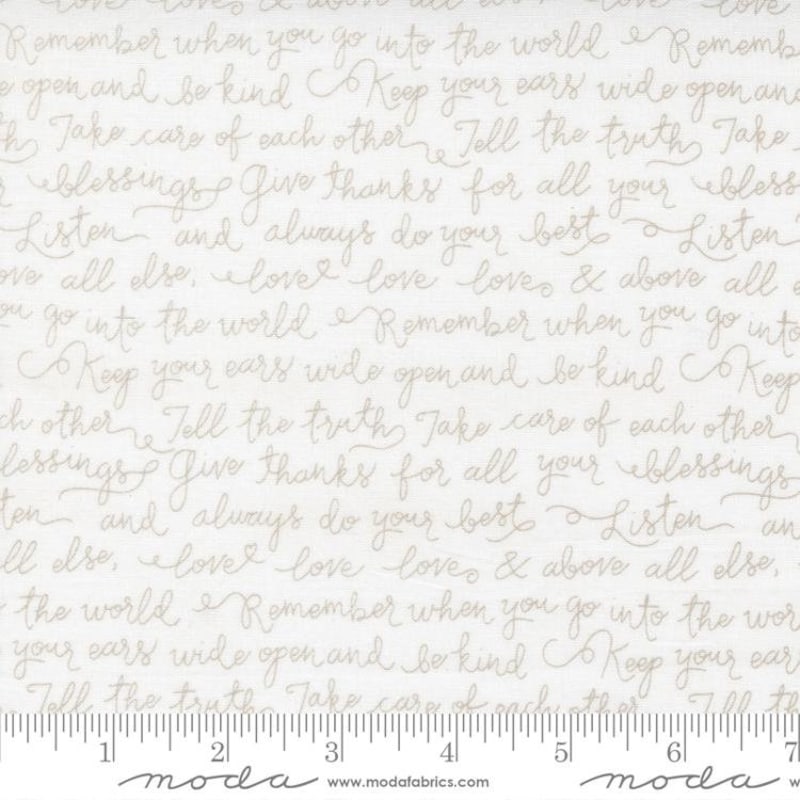 love love & above all else, love love
Remember when you go into the world Rememb
e open and be kind Keep your ears wide open and
h Take care of each other Tell the truth Take
r blessings Give thanks for all your bless
Listen and always do your best Listen
ove all else, love love love & above all e
ou go into the world Remember when you go into
Keep your ears wide open and be kind Keep
ch other Tell the truth Take care of each other
lessings Give thanks for all your blessings
ten and always do your best Listen an
ll else, love love love & above all else,
the world Remember when you go into the wor
your ears wide open and be kind Keep your ears
Tell the truth Take care of each other Tell th
1 2 3 4 5 6 7
moda www.modafabrics.com moda w